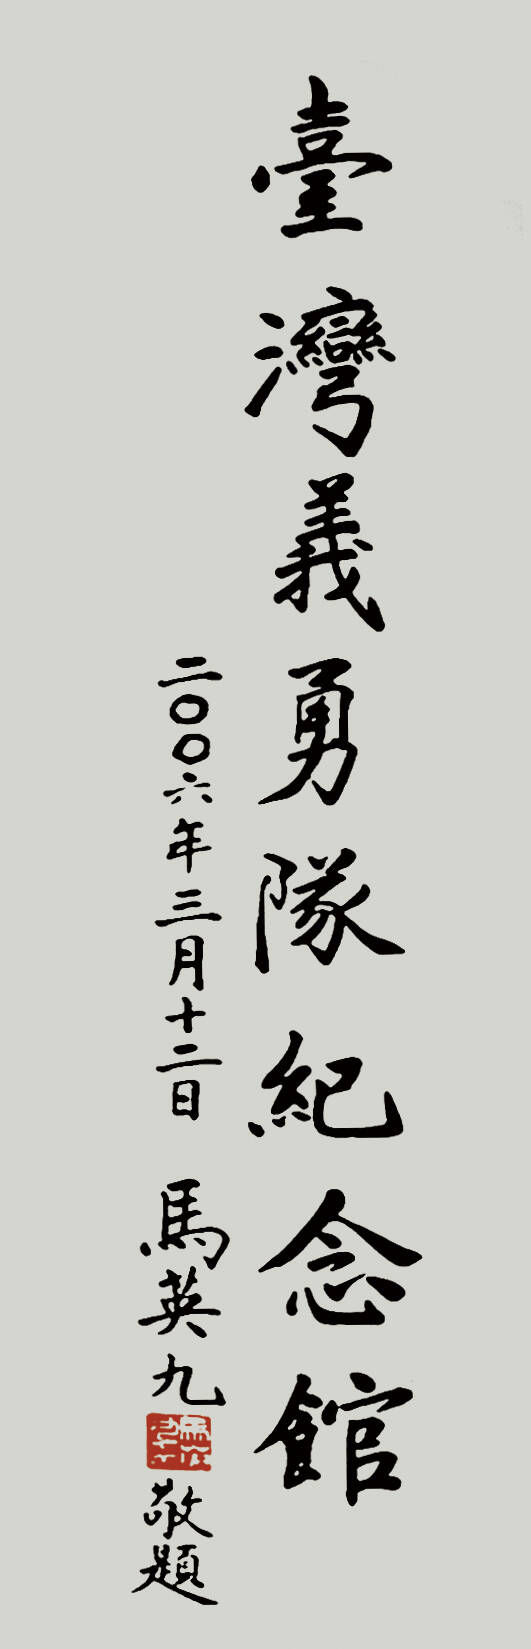 臺灣義勇隊紀念館
二〇〇六年三月十二日 馬英九 敬題